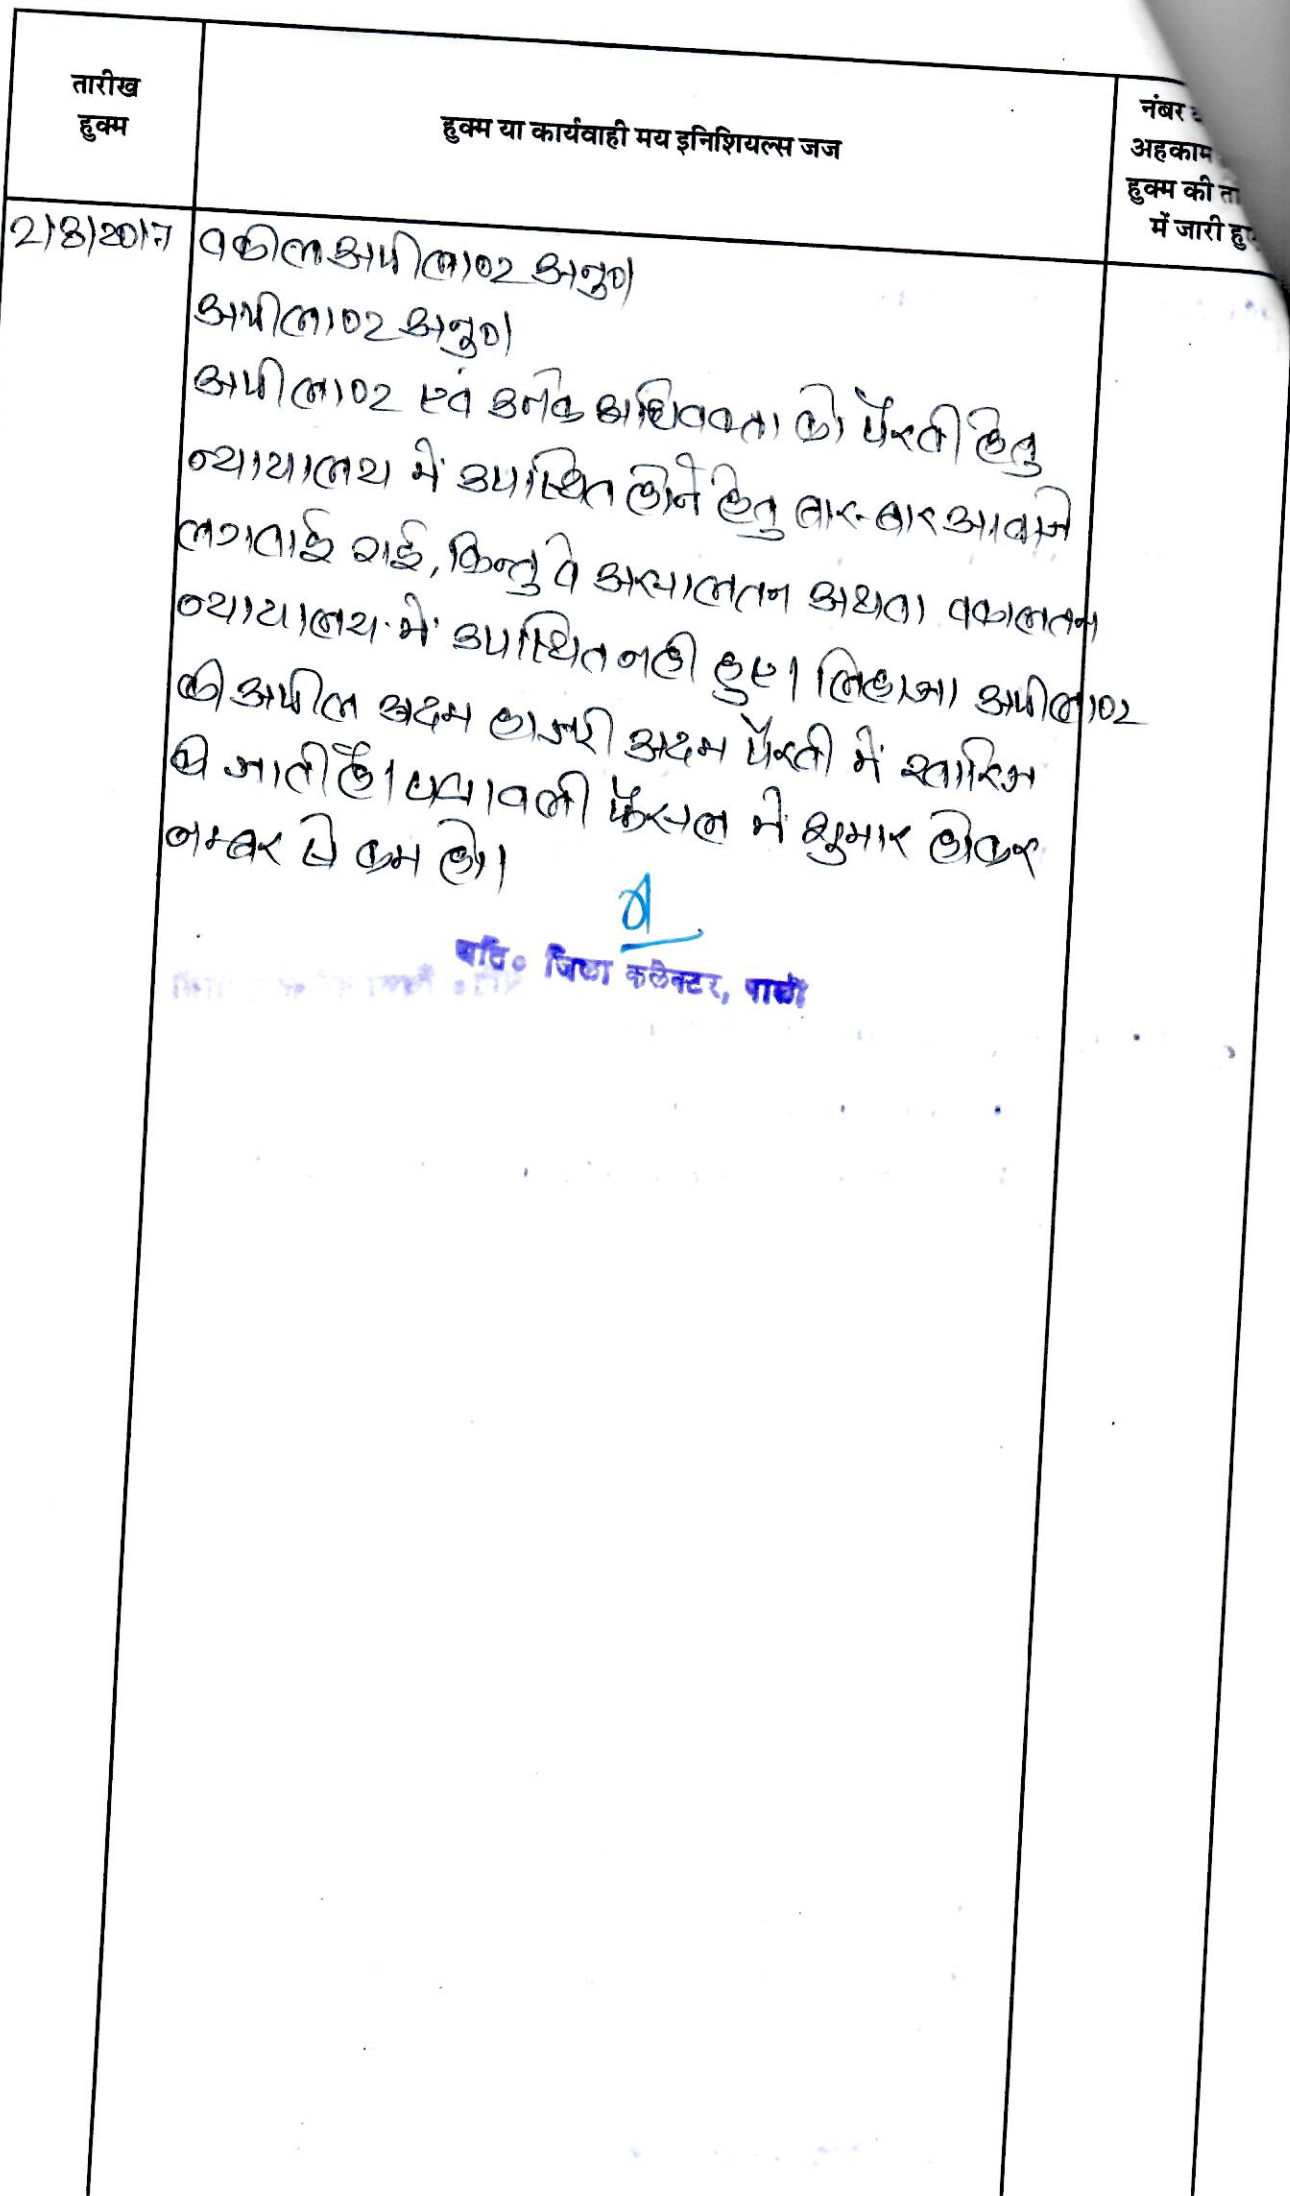 तारीख
हुक्म
हुक्म या कार्यवाही मय इनिशियल्स जज
नंबर
अहकाम
हुक्म की ता
में जारी हुए
2/8/2017
वकील अपीलाण्ट अनु०।
अपीलाण्ट अनु०।
अपीलाण्ट एवं उनके अधिवक्ता को पैरवी हेतु
न्यायालय में उपस्थित होने हेतु बार-बार आवाजे
लगवाई गई, किन्तु वे असालतन अथवा वकालतन
न्यायालय में उपस्थित नही हुए। लिहाजा अपीलाण्ट
की अपील अदम हाजरी अदम पैरवी में खारिज
की जाती है। पत्रावली फैसल में शुमार होकर
नम्बर से कम हो।
अति० जिला कलेक्टर, पाली